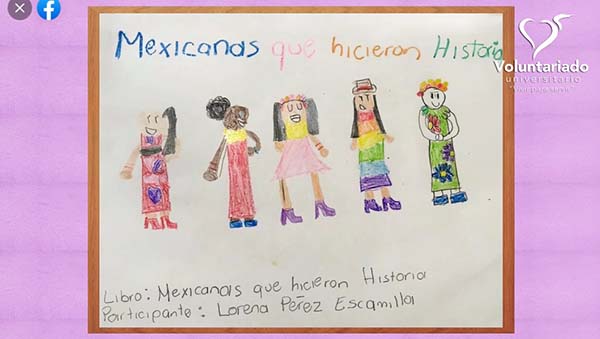 Mexicanas que hicieron Historia
Voluntariado
universitario
Libro: Mexicanas que hicieron Historia
Participante: Lorena Pérez Escamilla